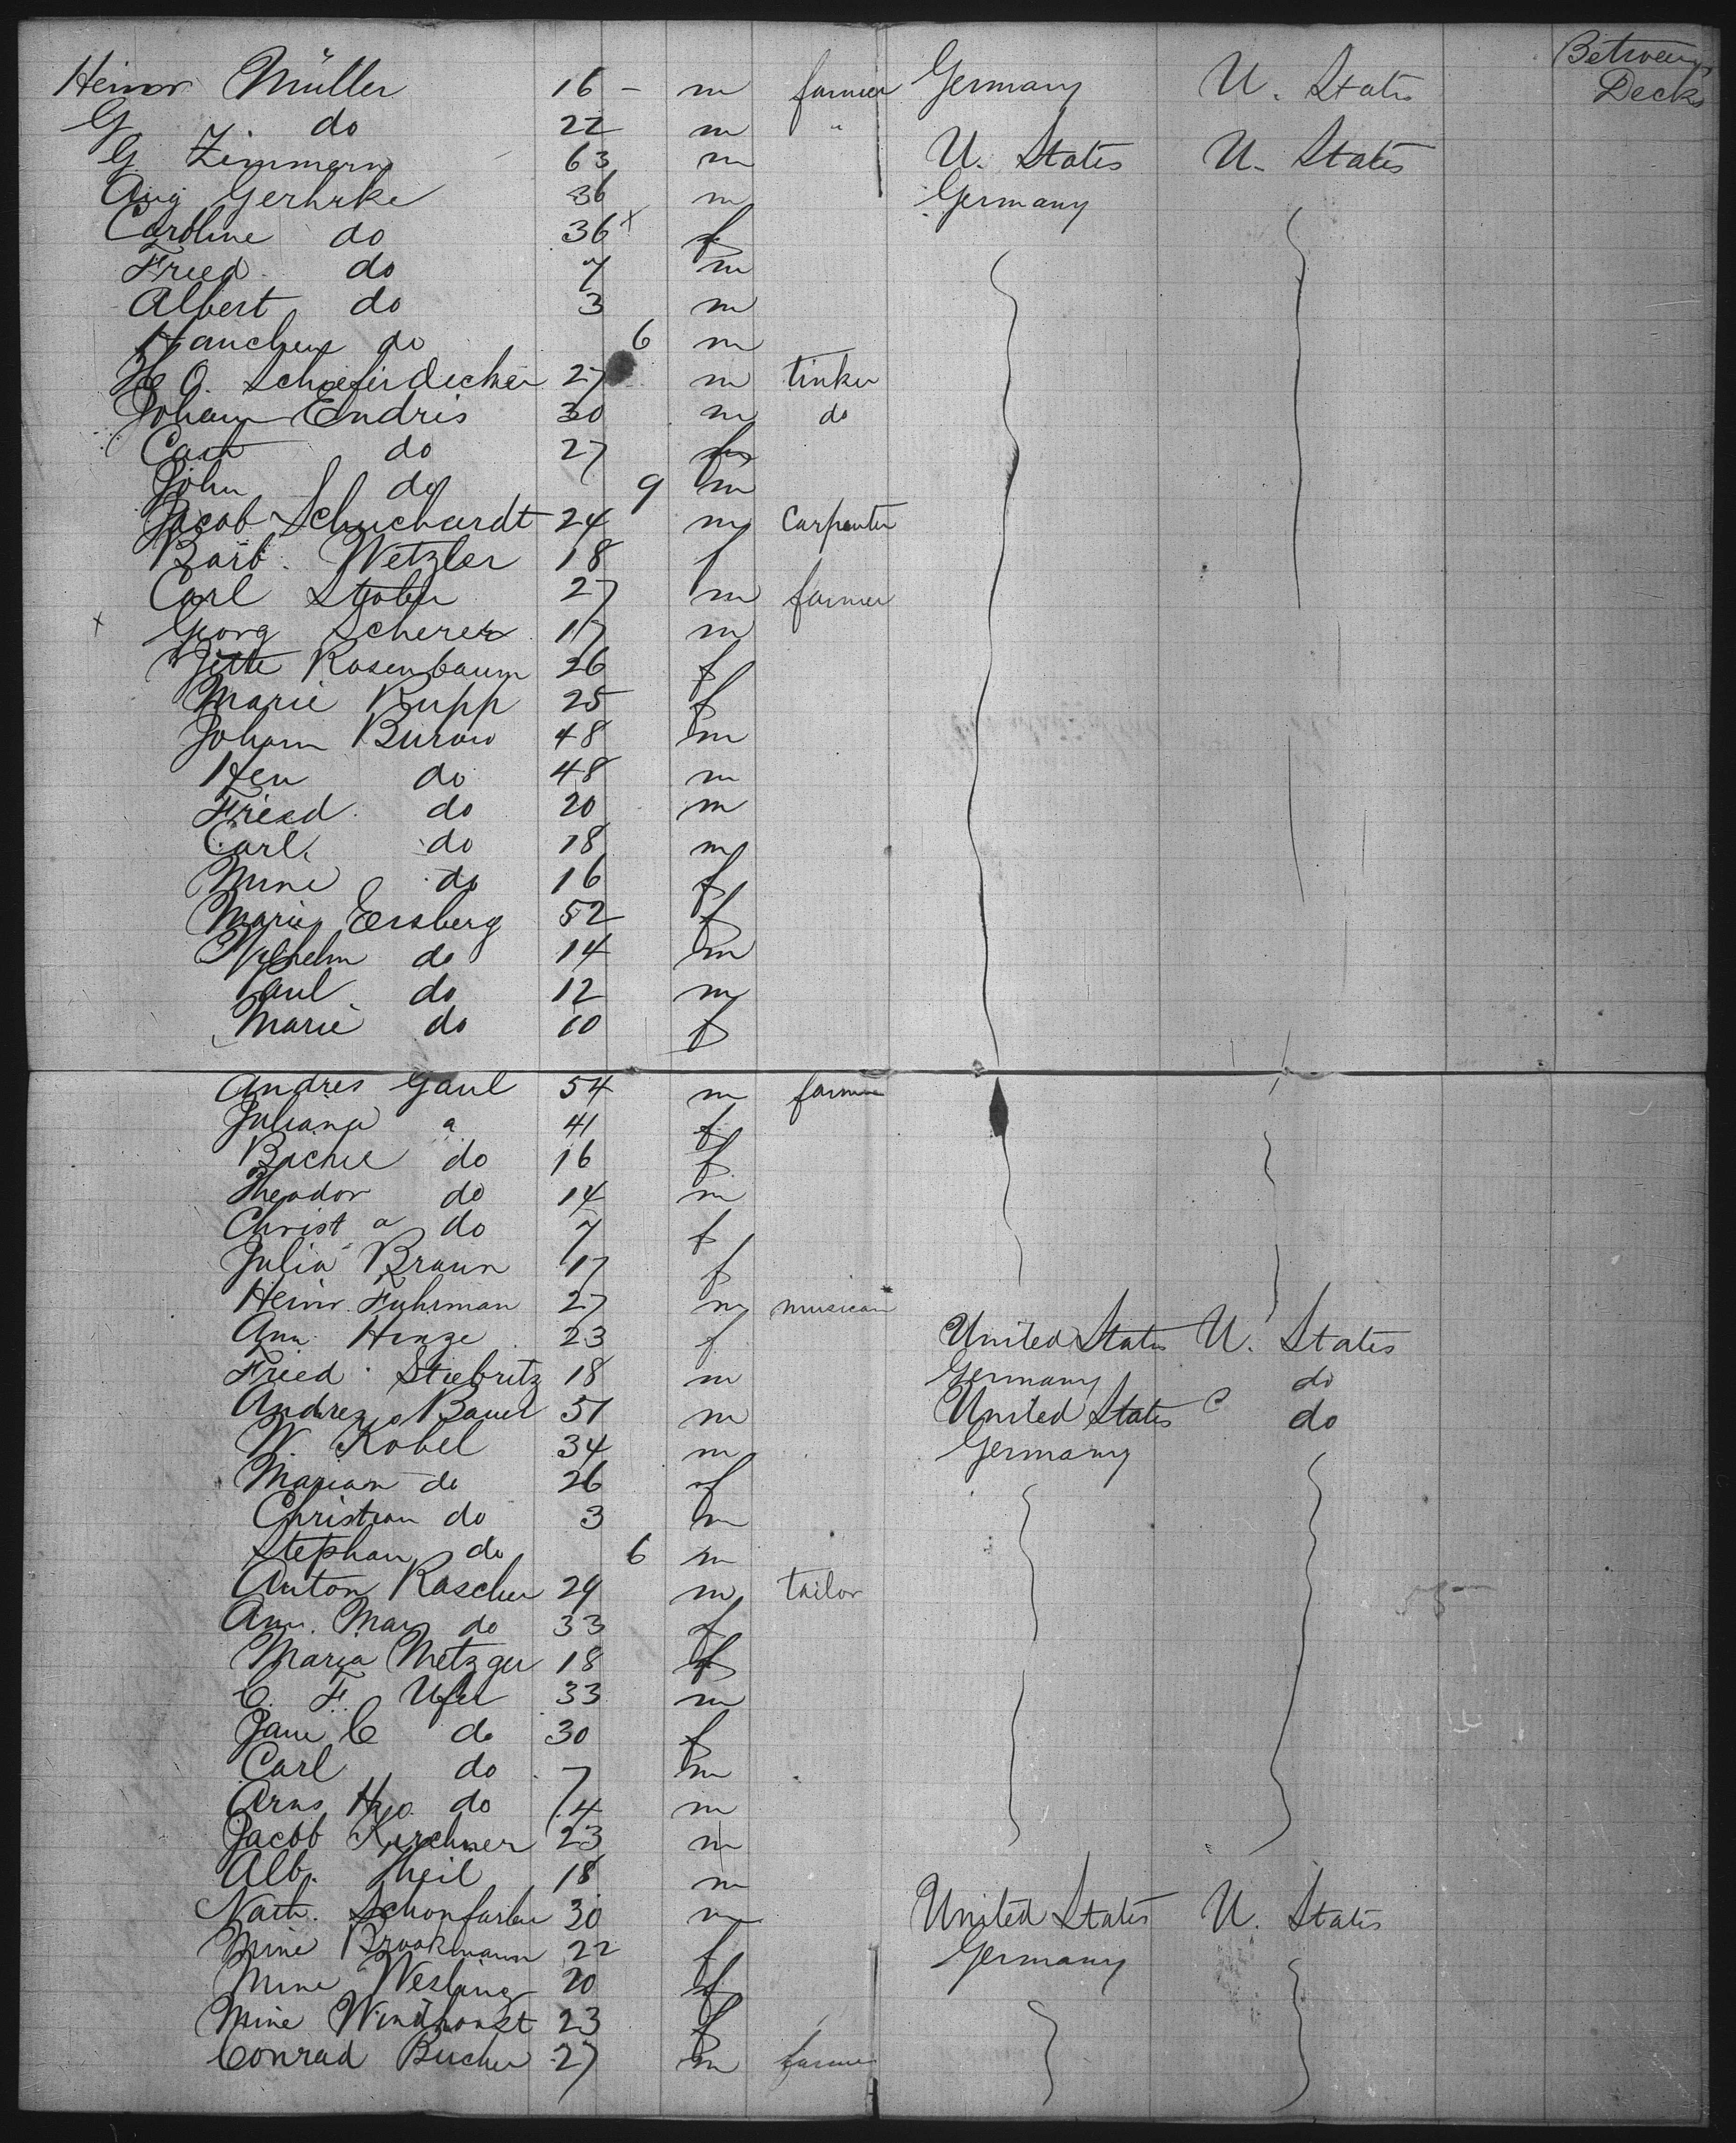 Heinr Müller 16 - m farmer Germany U. States Between Decks
G do 22 m " 
G Zimmern 63 m U. States U. States
Aug Gerhrke 36 m Germany
Caroline do 36 x f
Fried. do 7 m
Albert do 3 m
Hanchen do 6 m
H O. Schoefirdecker 27 m tinker
Johann Endris 30 m do
Cath do 27 f
John do 9 m
Jacob Schuchardt 24 m Carpenter
Barb. Wetzler 18 f
Carl Stober 27 m farmer
x Georg Scherer 17 m
Jette Rosenbaum 26 f
Marie Rupp 25 f
Joham Burow 48 m
Hen do 48 m
Fried. do 20 m
Carl. do 18 m
Mine do 16 f
Marie Ersberg 52 f
Wilhelm do 14 m
Paul do 12 m
Marie do 10 f
Andres Gaul 54 m farmer
Juliana a 41 f
do 16 f
Theodor do 14 m
Christ a do 7 f
Julia Braun 17 f
Heinr. Fuhrman 27 m musican
Ann Hinze 23 f United States U. States
Fried. Stiebritz 18 m Germany do
Andrez Bauer 51 m United States do
W. Kobel 34 m Germany
Marian do 26 f
Christian do 3 m
Stephan do 6 m
Anton Rascher 29 m tailor
Ann. Mar do 33 f
Maria Metzger 18 f
C. F. Ufer 33 m
Jane C do 30 f
Carl do 7 m
Arns Hgo. do 4 m
Jacob Kirchner 23 m
Alb. Theil 18 m
Nath. Schonfarber 30 m United States U. States
Mine Brookmann 22 f Germany
Mine Wesling 20 f
Mine Windhorst 23 f
Conrad Bucher 27 m farmer